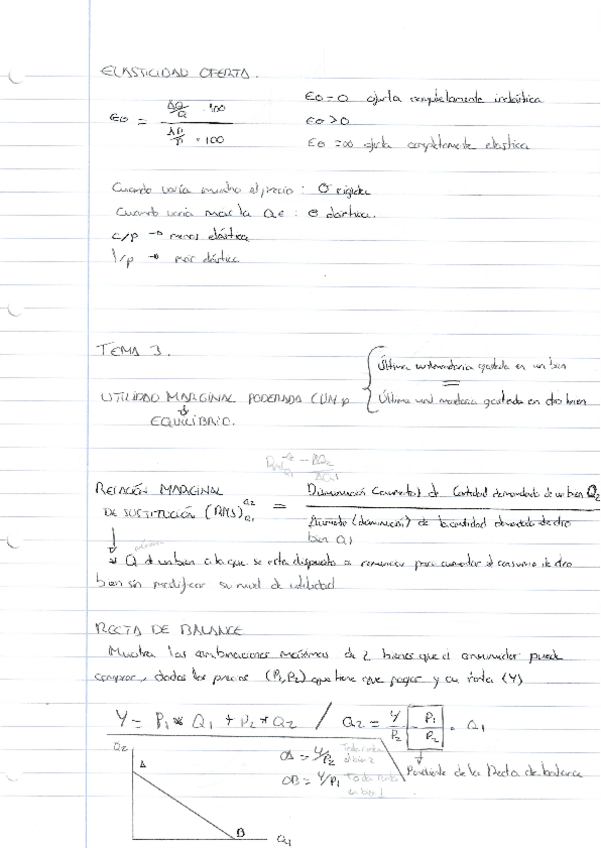 ELASTICIDAD OFERTA.
εo = ΔQ/Q · 100 / ΔP/P · 100
εo = 0 oferta completamente inelástica
εo > 0
εo = ∞ oferta completamente elastica
Cuando varía mucho el precio: O rígida
Cuando varia mas la Q
c/p → menos elástica
l/p → más elástica
TEMA 3.
Última unidad monetaria gastada en un bien
=
UTILIDAD MARGINAL PODERADA
Última unid monetaria gastada en otro bien
EQUILIBRIO.
RELACIÓN MARGINAL
DE SUSTITUCIÓN (RMS) Q2 Q1 = Disminución (aumento) d cantidad demandada de un bien Q2
Aumento (disminución) de la cantidad demandada de otro
bien Q1
Q d un bien a la que se esta dispuesto a renunciar para aumentar el consumo de otro
bien sin modificar su nivel de utilidad
RECTA DE BALANCE
Muestra las combinaciones máximas de 2 bienes que el consumidor puede
comprar, dados los precios (P1, P2) que tiene que pagar y su renta (Y)
Y = P1 * Q1 + P2 * Q2 / Q2 = Y/P2 - P1/P2 · Q1
Q2
A
OA = Y/P2 Toda renta el bien 2
OB = Y/P1 Toda renta en bien 1
Pendiente de la Recta de balance
B
Q1